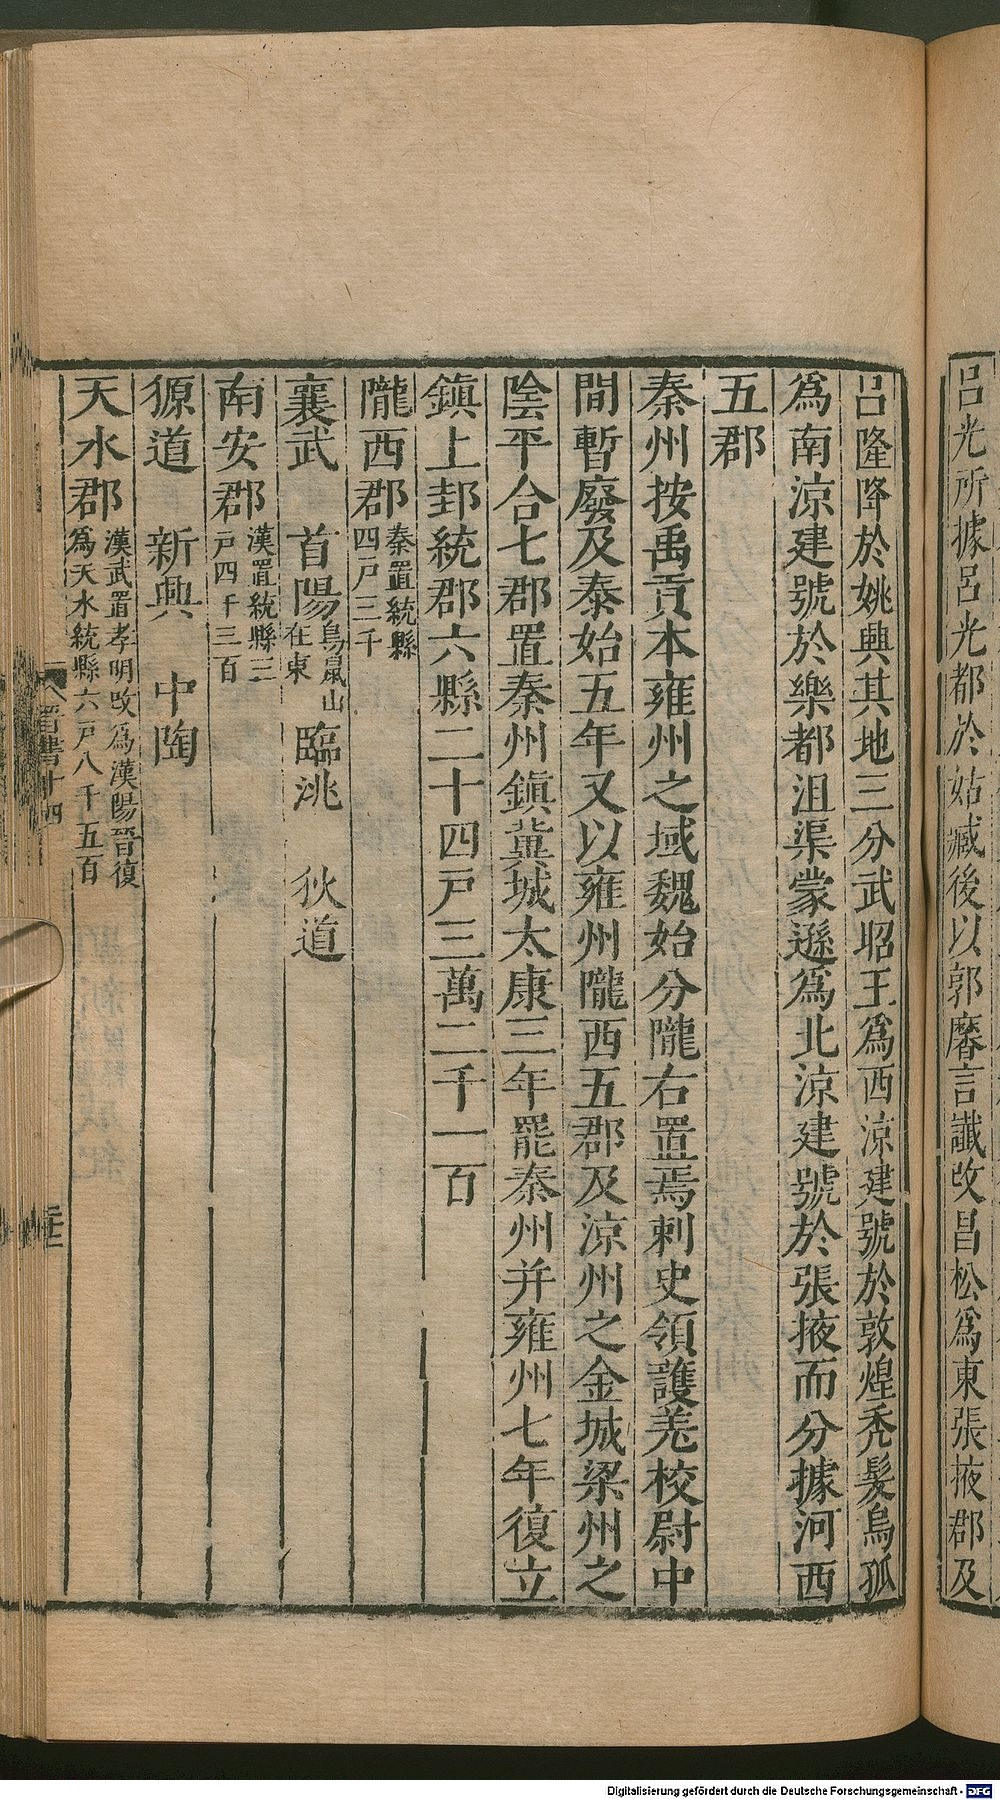 呂光所據呂光都於姑臧後以郭黁言讖改昌松爲東張掖郡及
呂隆降於姚興其地三分武昭王爲西涼建號於敦煌禿髮烏孤
爲南涼建號於樂都沮渠蒙遜爲北涼建號於張掖而分據河西
五郡
秦州按禹貢本雍州之域魏始分隴右置焉刺史領護羌校尉中
間暫廢及泰始五年又以雍州隴西五郡及涼州之金城梁州之
陰平合七郡置秦州鎮冀城太康三年罷秦州并雍州七年復立
鎮上邽統郡六縣二十四戸三萬二千一百
隴西郡秦置統縣四戸三千
襄武 首陽鳥鼠山在東 臨洮 狄道
南安郡漢置統縣三戸四千三百
獂道 新興 中陶
天水郡漢武置孝明改爲漢陽晉復爲天水統縣六戸八千五百
晉書十四
Digitalisierung gefördert durch die Deutsche Forschungsgemeinschaft - DFG